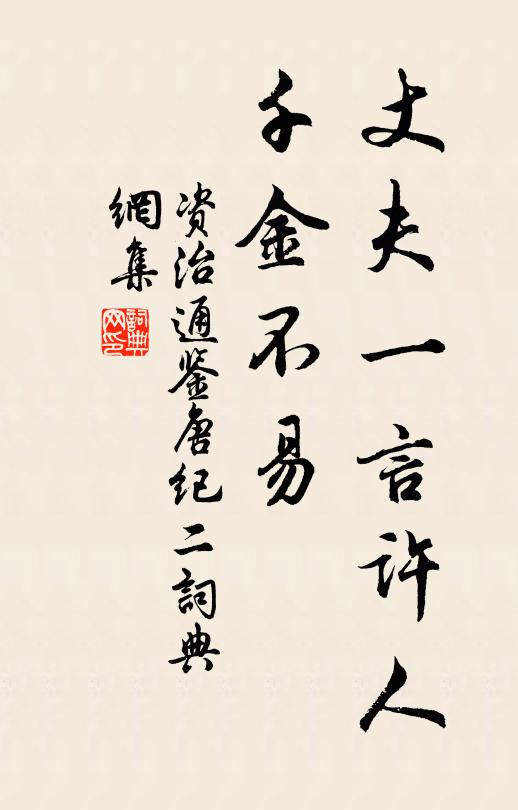 丈夫一言许人
千金不易
资治通鉴唐纪二詞典
網集
詞典
网印